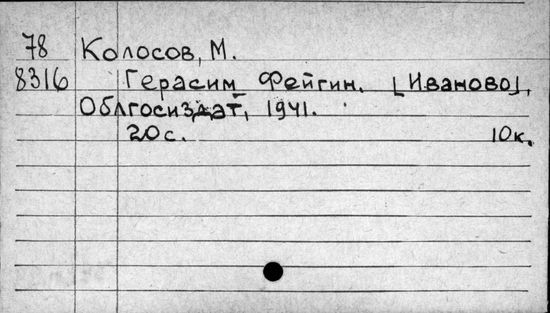 78 Колосов, М.
8316 Герасим Фейгин. [Иваново],
Облгосиздат, 1941.
20с. 10к.